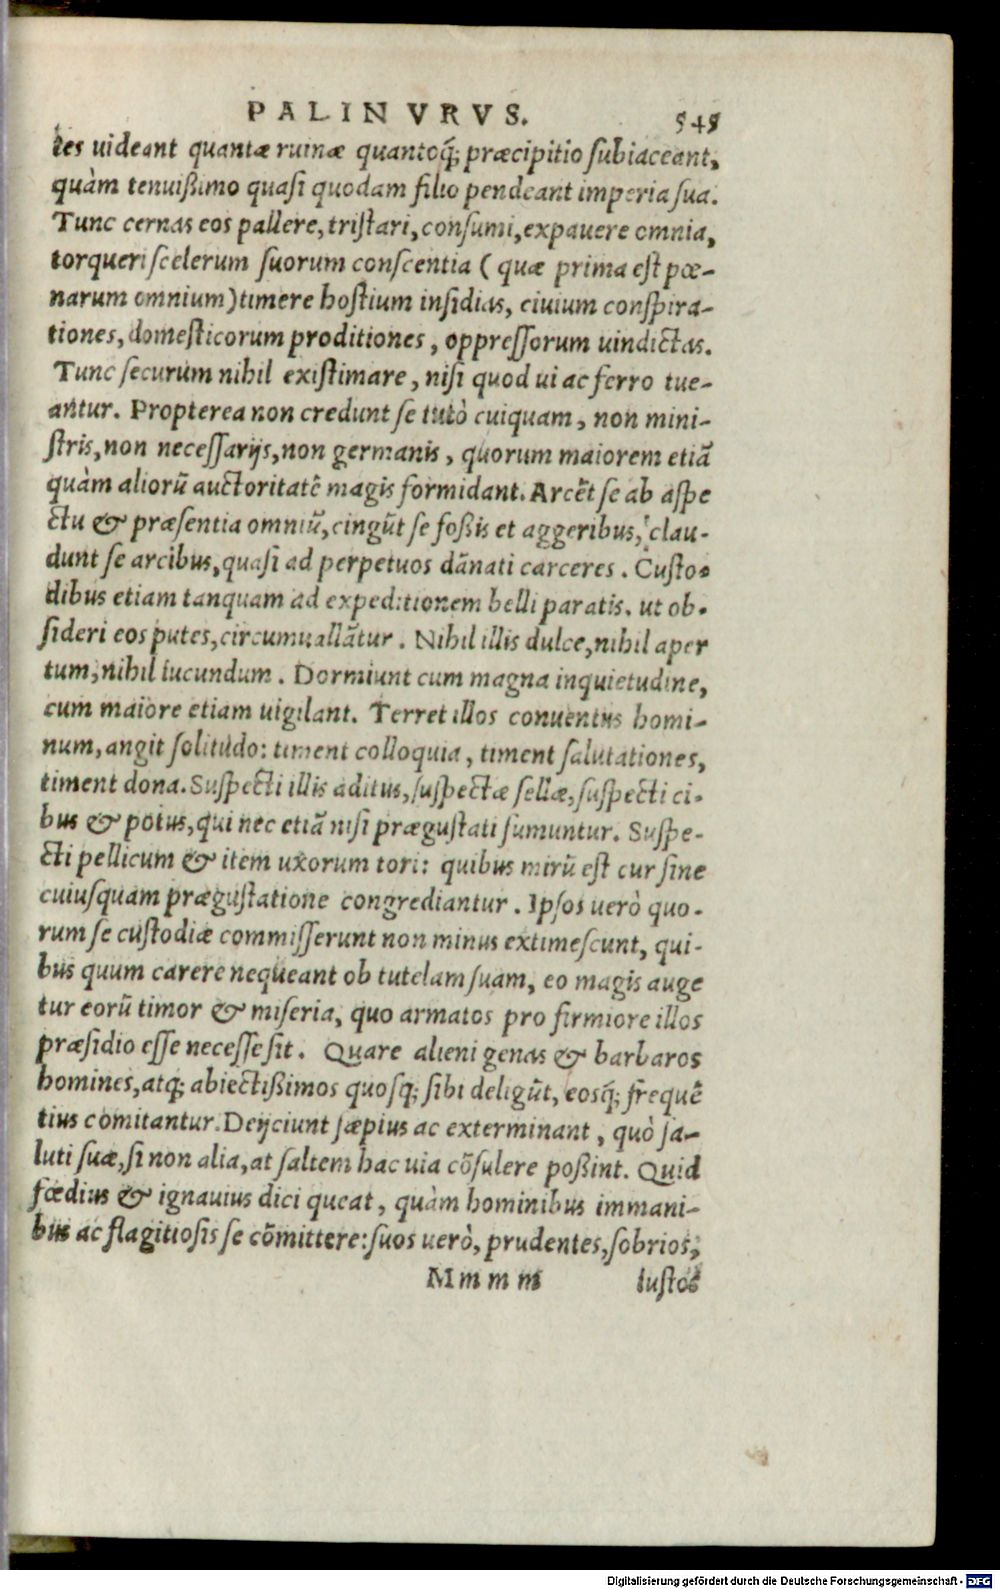 PALINVRVS. 545
tes uideant quantæ ruinæ quantoq́; præcipitio subiaceant,
quàm tenuißimo quasi quodam filio pendeant imperia sua.
Tunc cernas eos pallere, tristari, consumi, expauere omnia,
torqueri scelerum suorum conscentia (quæ prima est pœ-
narum omnium) timere hostium insidias, ciuium conspira-
tiones, domesticorum proditiones, oppressorum uindictas.
Tunc securum nihil existimare, nisi quod ui ac ferro tue-
antur. Propterea non credunt se tutò cuiquam, non mini-
stris, non necessarijs, non germanis, quorum maiorem etiã
quàm aliorũ auctoritatẽ magis formidant. Arcẽt se ab aspe
ctu & præsentia omniũ, cingũt se foßis et aggeribus, clau-
dunt se arcibus, quasi ad perpetuos dãnati carceres. Custo-
dibus etiam tanquam ad expeditionem belli paratis. ut ob-
sideri eos putes, circumuallãtur. Nihil illis dulce, nihil aper
tum, nihil iucundum. Dormiunt cum magna inquietudine,
cum maiore etiam uigilant. Terret illos conuentus homi-
num, angit solitudo: timent colloquia, timent salutationes,
timent dona. Suspecti illis aditus, suspectæ sellæ, suspecti ci-
bus & potus, qui nec etiã nisi prægustati sumuntur. Suspe-
cti pellicum & item uxorum tori: quibus mirũ est cur sine
cuiusquam prægustatione congrediantur. Ipsos uerò quo-
rum se custodiæ commisserunt non minus extimescunt, qui-
bus quum carere nequeant ob tutelam suam, eo magis auge
tur eorũ timor & miseria, quo armatos pro firmiore illos
præsidio esse necesse sit. Quare alienigenas & barbaros
homines, atq; abiectißimos quosq; sibi deligũt, eosq́; frequẽ
tius comitantur. Deijciunt sæpius ac exterminant, quò sa-
luti suæ, si non alia, at saltem hac uia cõsulere poßint. Quid
fœdius & ignauius dici queat, quàm hominibus immani-
bus ac flagitiosis se cõmittere: suos uerò, prudentes, sobrios,
Mmmm iustos
Digitalisierung gefördert durch die Deutsche Forschungsgemeinschaft - DFG